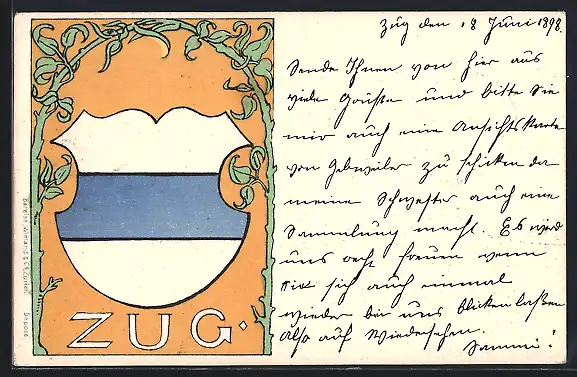 Zug den 18 Juni 1898.
Sende Ihnen von hier aus
viele Grüße und bitte Sie
mir auch eine Ansichtskarte
von Gebweiler zu schicken da
meine Schwester auch eine
Sammlung macht. Es wird
uns recht freuen wenn
Sie sich auch einmal
wieder bei uns blicken laßen
also auf Wiedersehen.
ZUG.